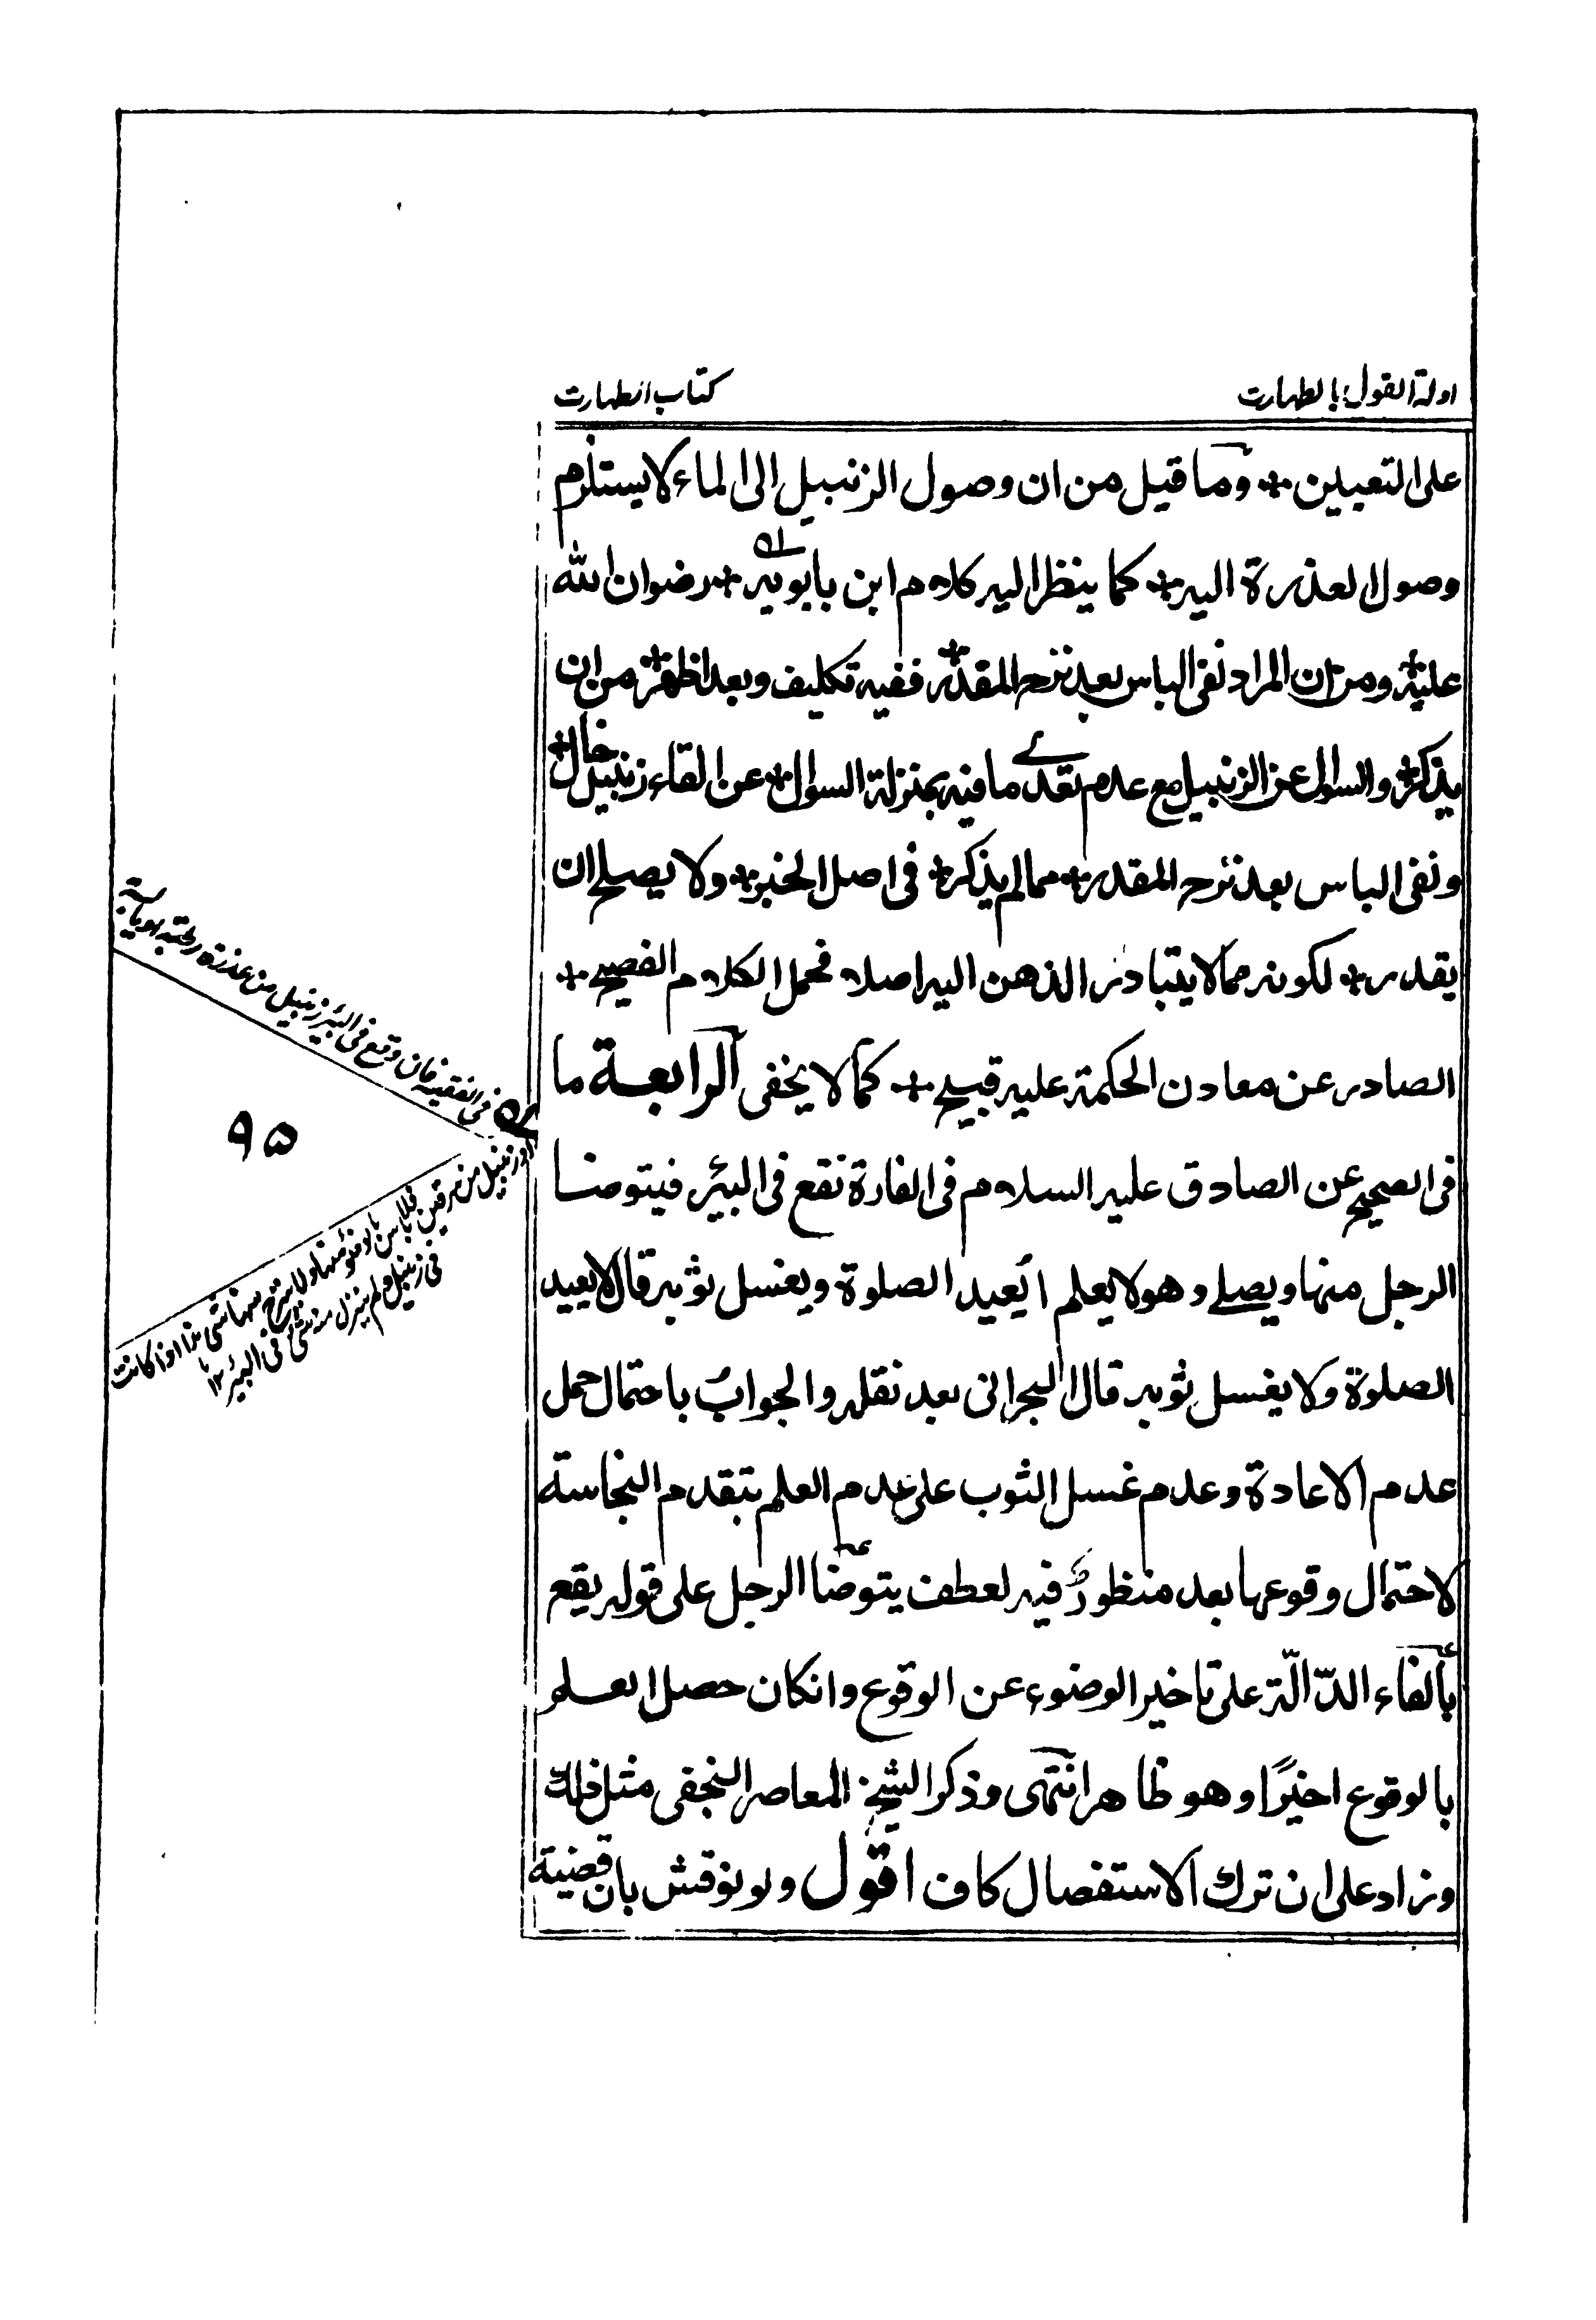 ادلة القول بالطهارت
كتاب الطهارت
على التعيين + وما قيل من ان وصول الزنبيل الى الماء لا يستلزم
وصول العذرة اليه + كما ينظر اليه كلام ابن بابويه + رضوان الله
عليه + ومن ان المراد نفى الباس بعد نزح المقدر + ففيه تكليف وبعد اظهر + من ان
يذكر + والسوال عن الزنبيل مع عدم تعدى ما فيه بمنزلة السوال + عن القاء زنبيل خال +
ونفى الباس بعد نزح المقدر + مما لم يذكر + فى اصل الخبر + ولا يصلح ان
يقدر + لكونه مما لا يتبادر الذهن اليه اصلا فحمل الكلام الفصيح +
الصادر عن معادن الحكمة عليه قبيح + كما لا يخفى الرابعة ما
فى الصحيح عن الصادق عليه السلام فى الفارة تقع فى البير فيتوضا
الرجل منها ويصلے وهو لا يعلم ايعيد الصلوة ويغسل ثوبه قال لا يعيد
الصلوة ولا يغسل ثوبه قال البحرانى بعد نقله والجواب باحتمال حمل
عدم الاعادة وعدم غسل الثوب على عدم العلم بتقدم النجاسة
لاحتمال وقوعها بعد منظور فيه لعطف يتوضا الرجل على قوله يقع
بالفاء الدالة على تاخير الوضوء عن الوقوع وانكان حصل العلم
بالوقوع اخيرًا وهو ظاهر انتهى وذكر الشيخ المعاصر النجفى مثل ذلك
وزاد على ان ترك الاستفصال كاف اقول ولو نوقش بان قضية
فى الفقيه فان وقع فى البئر زنبيل من عذرة رطبة او يابسة
او زنبيل من سرقين فلا باس بالوضوء منها ولا ينزح منها شى هذا اذا كانت
فى زنبيل ولم ينزل منه شى فى البير ١٢
٩٥